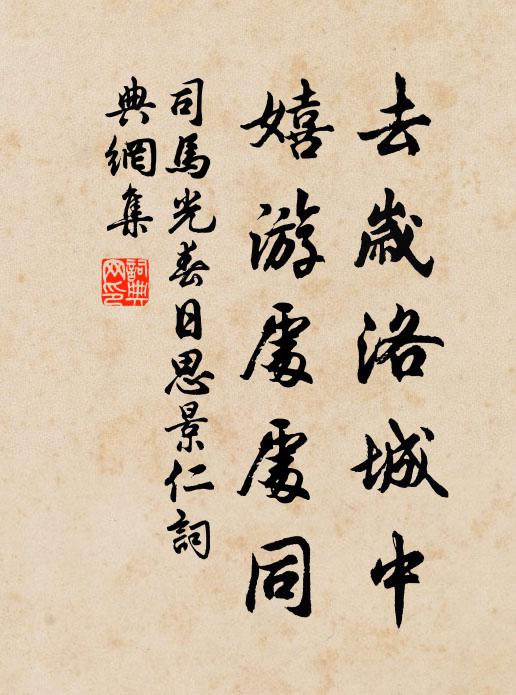 去歲洛城中
嬉游處處同
司馬光春日思景仁詞
典網集
詞典
網印